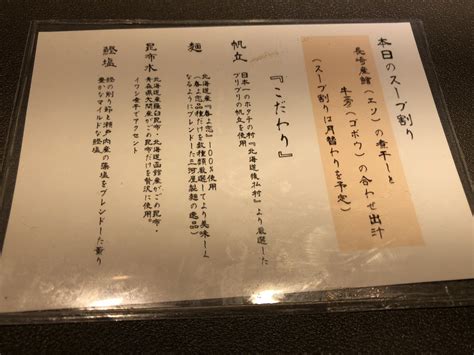 本日のスープ割り
長崎産鯥(エソ)の煮干しと
牛蒡(ゴボウ)の合わせ出汁
(スープ割りは月替わりを予定)
『こだわり』
帆立
日本一のホタテの村『北海道猿払村』より厳選した
プリプリの帆立を使用
麺
北海道産『春よ恋』100%使用
『春よ恋』品種だけを数種類厳選してより美味しく
なるようにブレンドした三河屋製麺の逸品
昆布水
北海道産羅臼昆布・北海道函館産がごめ昆布・
青森県大間産がごめ昆布だけを贅沢に使用。
イワシ煮干でアクセント
鰹塩
鰹の削り節と瀬戸内産の藻塩をブレンドした薫り
豊かなマイルドな鰹塩